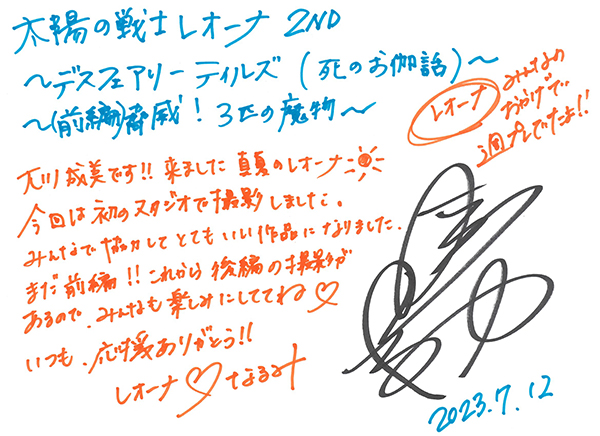 太陽の戦士レオーナ 2ND
～デスフェアリーテイルズ（死のお伽話）～
～（前編）脅威！3匹の魔物～
レオーナ みんなの
おかげで
週プレでたよ!!
天川成美です!! 来ました 真夏のレオーナ
今回は初のスタジオで撮影しました。
みんなで協力してとてもいい作品になりました.
まだ前編!! これから後編の撮影が
あるので、みんなも楽しみにしててね♡
いつも、応援ありがとう!!
レオーナ♡なるみ
2023.7.12